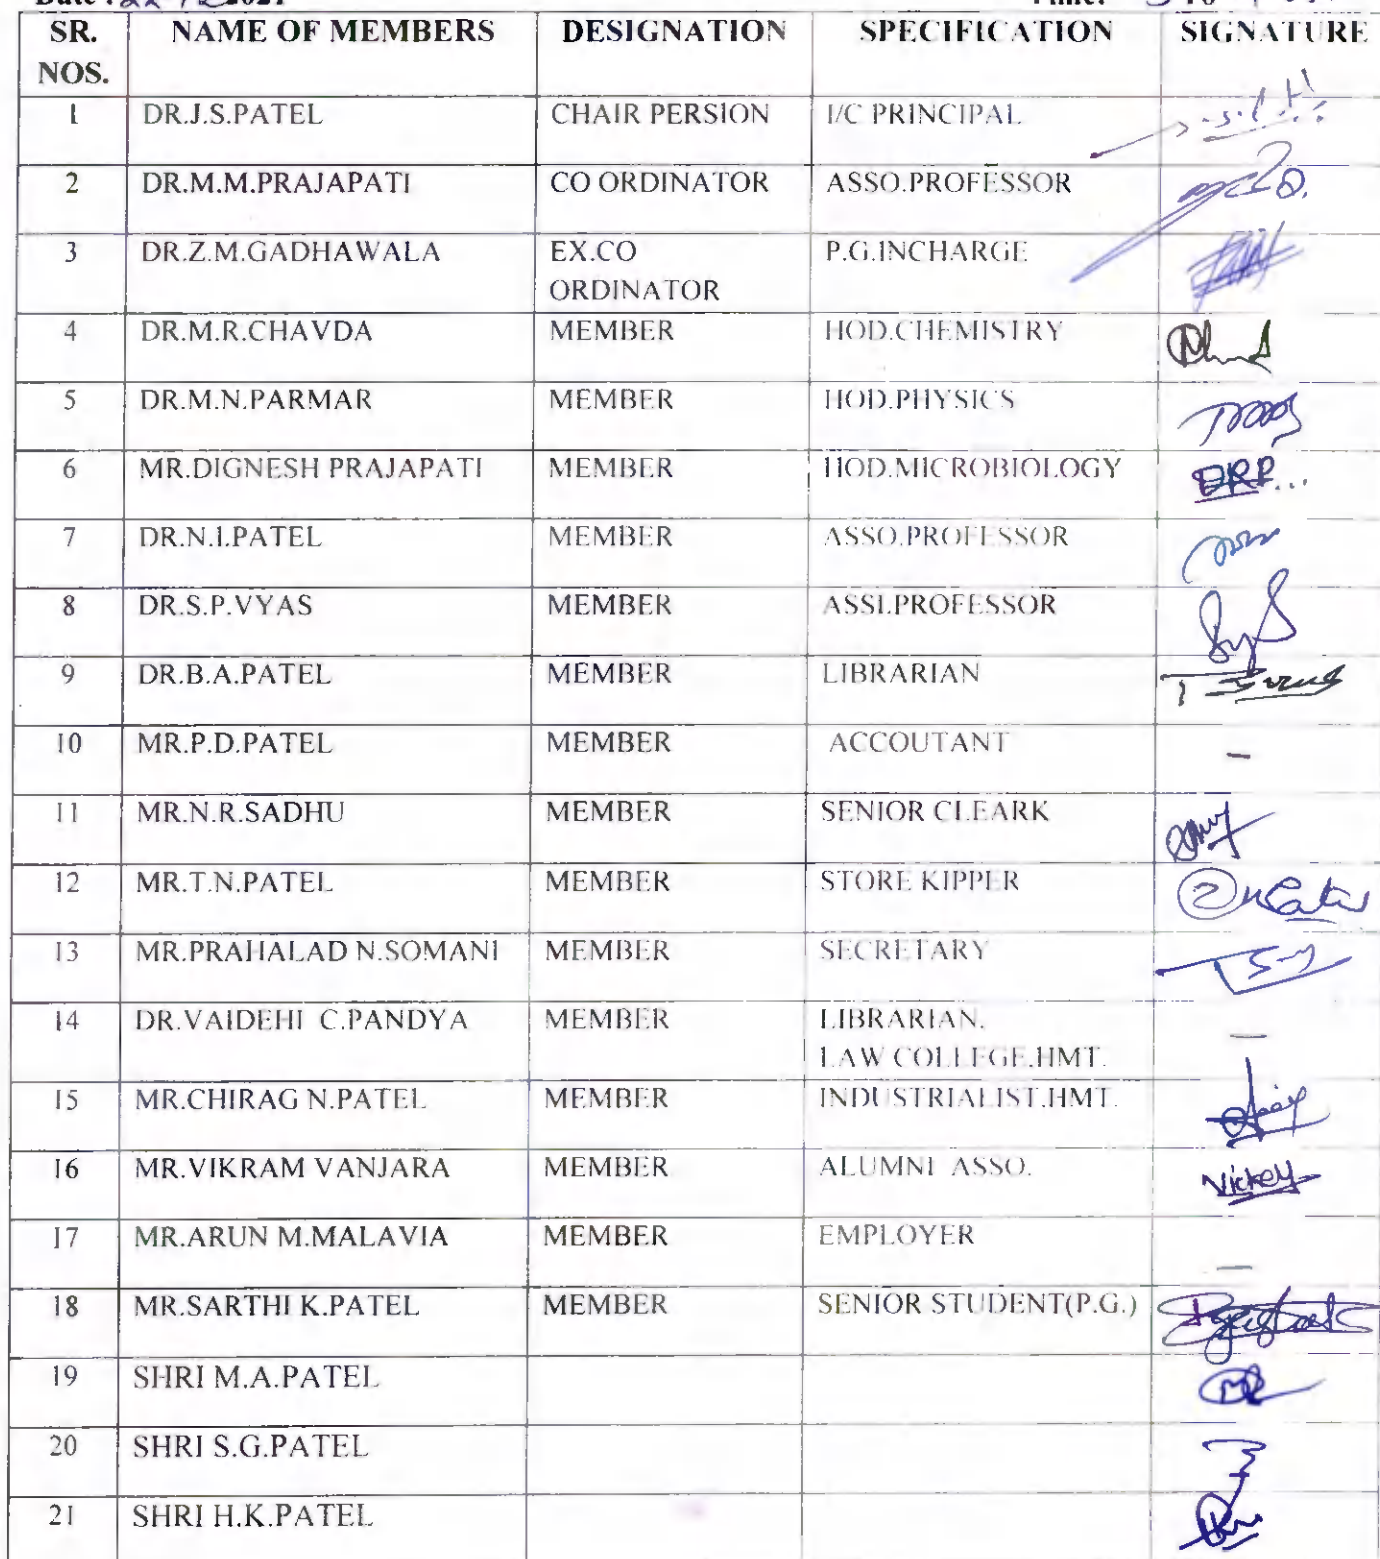 SR. NOS. NAME OF MEMBERS DESIGNATION SPECIFICATION SIGNATURE
1 DR.J.S.PATEL CHAIR PERSION I/C PRINCIPAL
2 DR.M.M.PRAJAPATI CO ORDINATOR ASSO.PROFESSOR
3 DR.Z.M.GADHAWALA EX.CO ORDINATOR P.G.INCHARGE
4 DR.M.R.CHAVDA MEMBER HOD.CHEMISTRY
5 DR.M.N.PARMAR MEMBER HOD.PHYSICS
6 MR.DIGNESH PRAJAPATI MEMBER HOD.MICROBIOLOGY DRP...
7 DR.N.I.PATEL MEMBER ASSO.PROFESSOR
8 DR.S.P.VYAS MEMBER ASSI.PROFESSOR
9 DR.B.A.PATEL MEMBER LIBRARIAN
10 MR.P.D.PATEL MEMBER ACCOUTANT –
11 MR.N.R.SADHU MEMBER SENIOR CLEARK
12 MR.T.N.PATEL MEMBER STORE KIPPER
13 MR.PRAHALAD N.SOMANI MEMBER SECRETARY
14 DR.VAIDEHI C.PANDYA MEMBER LIBRARIAN. LAW COLLEGE.HMT. –
15 MR.CHIRAG N.PATEL MEMBER INDUSTRIALIST.HMT.
16 MR.VIKRAM VANJARA MEMBER ALUMNI ASSO. Vickey
17 MR.ARUN M.MALAVIA MEMBER EMPLOYER –
18 MR.SARTHI K.PATEL MEMBER SENIOR STUDENT(P.G.)
19 SHRI M.A.PATEL
20 SHRI S.G.PATEL
21 SHRI H.K.PATEL